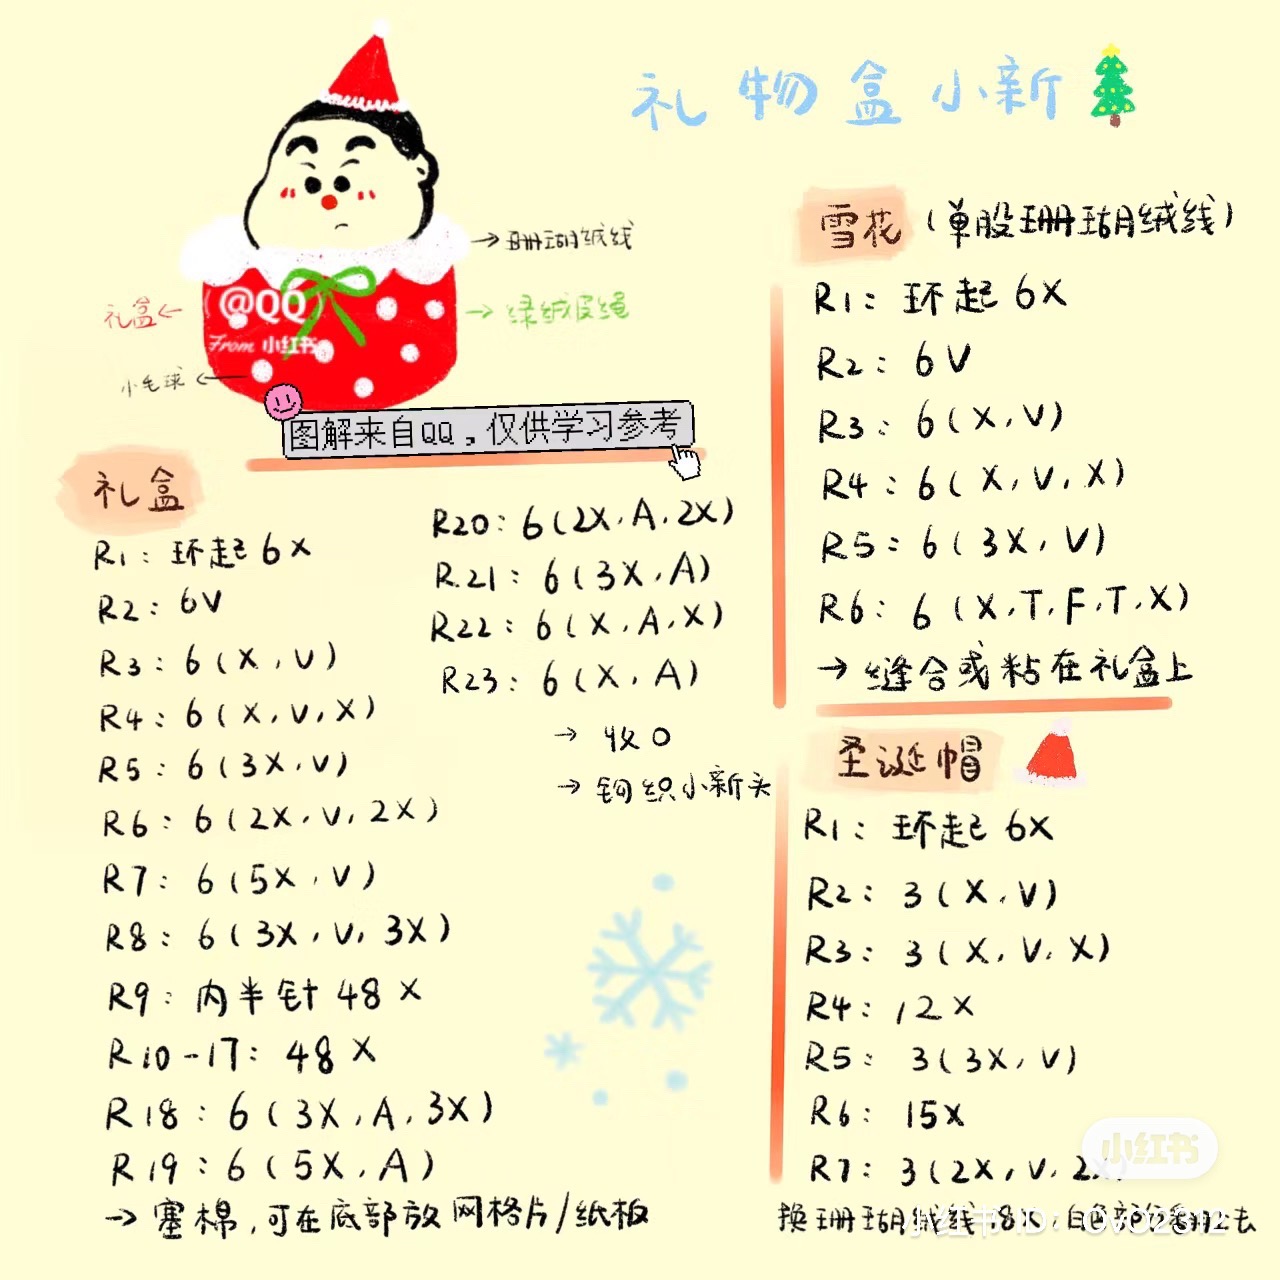 礼物盒小新
珊瑚绒线
礼盒
@QQ
From 小红书
绿绒皮绳
小毛球
图解来自QQ，仅供学习参考
礼盒
R1：环起6X
R2：6V
R3：6(X，V)
R4：6(X，V，X)
R5：6(3X，V)
R6：6(2X，V，2X)
R7：6(5X，V)
R8：6(3X，V，3X)
R9：内半针48X
R10-17：48X
R18：6(3X，A，3X)
R19：6(5X，A)
→塞棉，可在底部放网格片/纸板
R20：6(2X，A，2X)
R21：6(3X，A)
R22：6(X，A，X)
R23：6(X，A)
→收口
→钩织小新头
雪花(单股珊瑚绒线)
R1：环起6X
R2：6V
R3：6(X，V)
R4：6(X，V，X)
R5：6(3X，V)
R6：6(X，T，F，T，X)
→缝合或粘在礼盒上
圣诞帽
R1：环起6X
R2：3(X，V)
R3：3(X，V，X)
R4：12X
R5：3(3X，V)
R6：15X
R7：3(2X，V，2X)
换珊瑚绒线18X，白色部分翻上去
小红书
小红书ID：